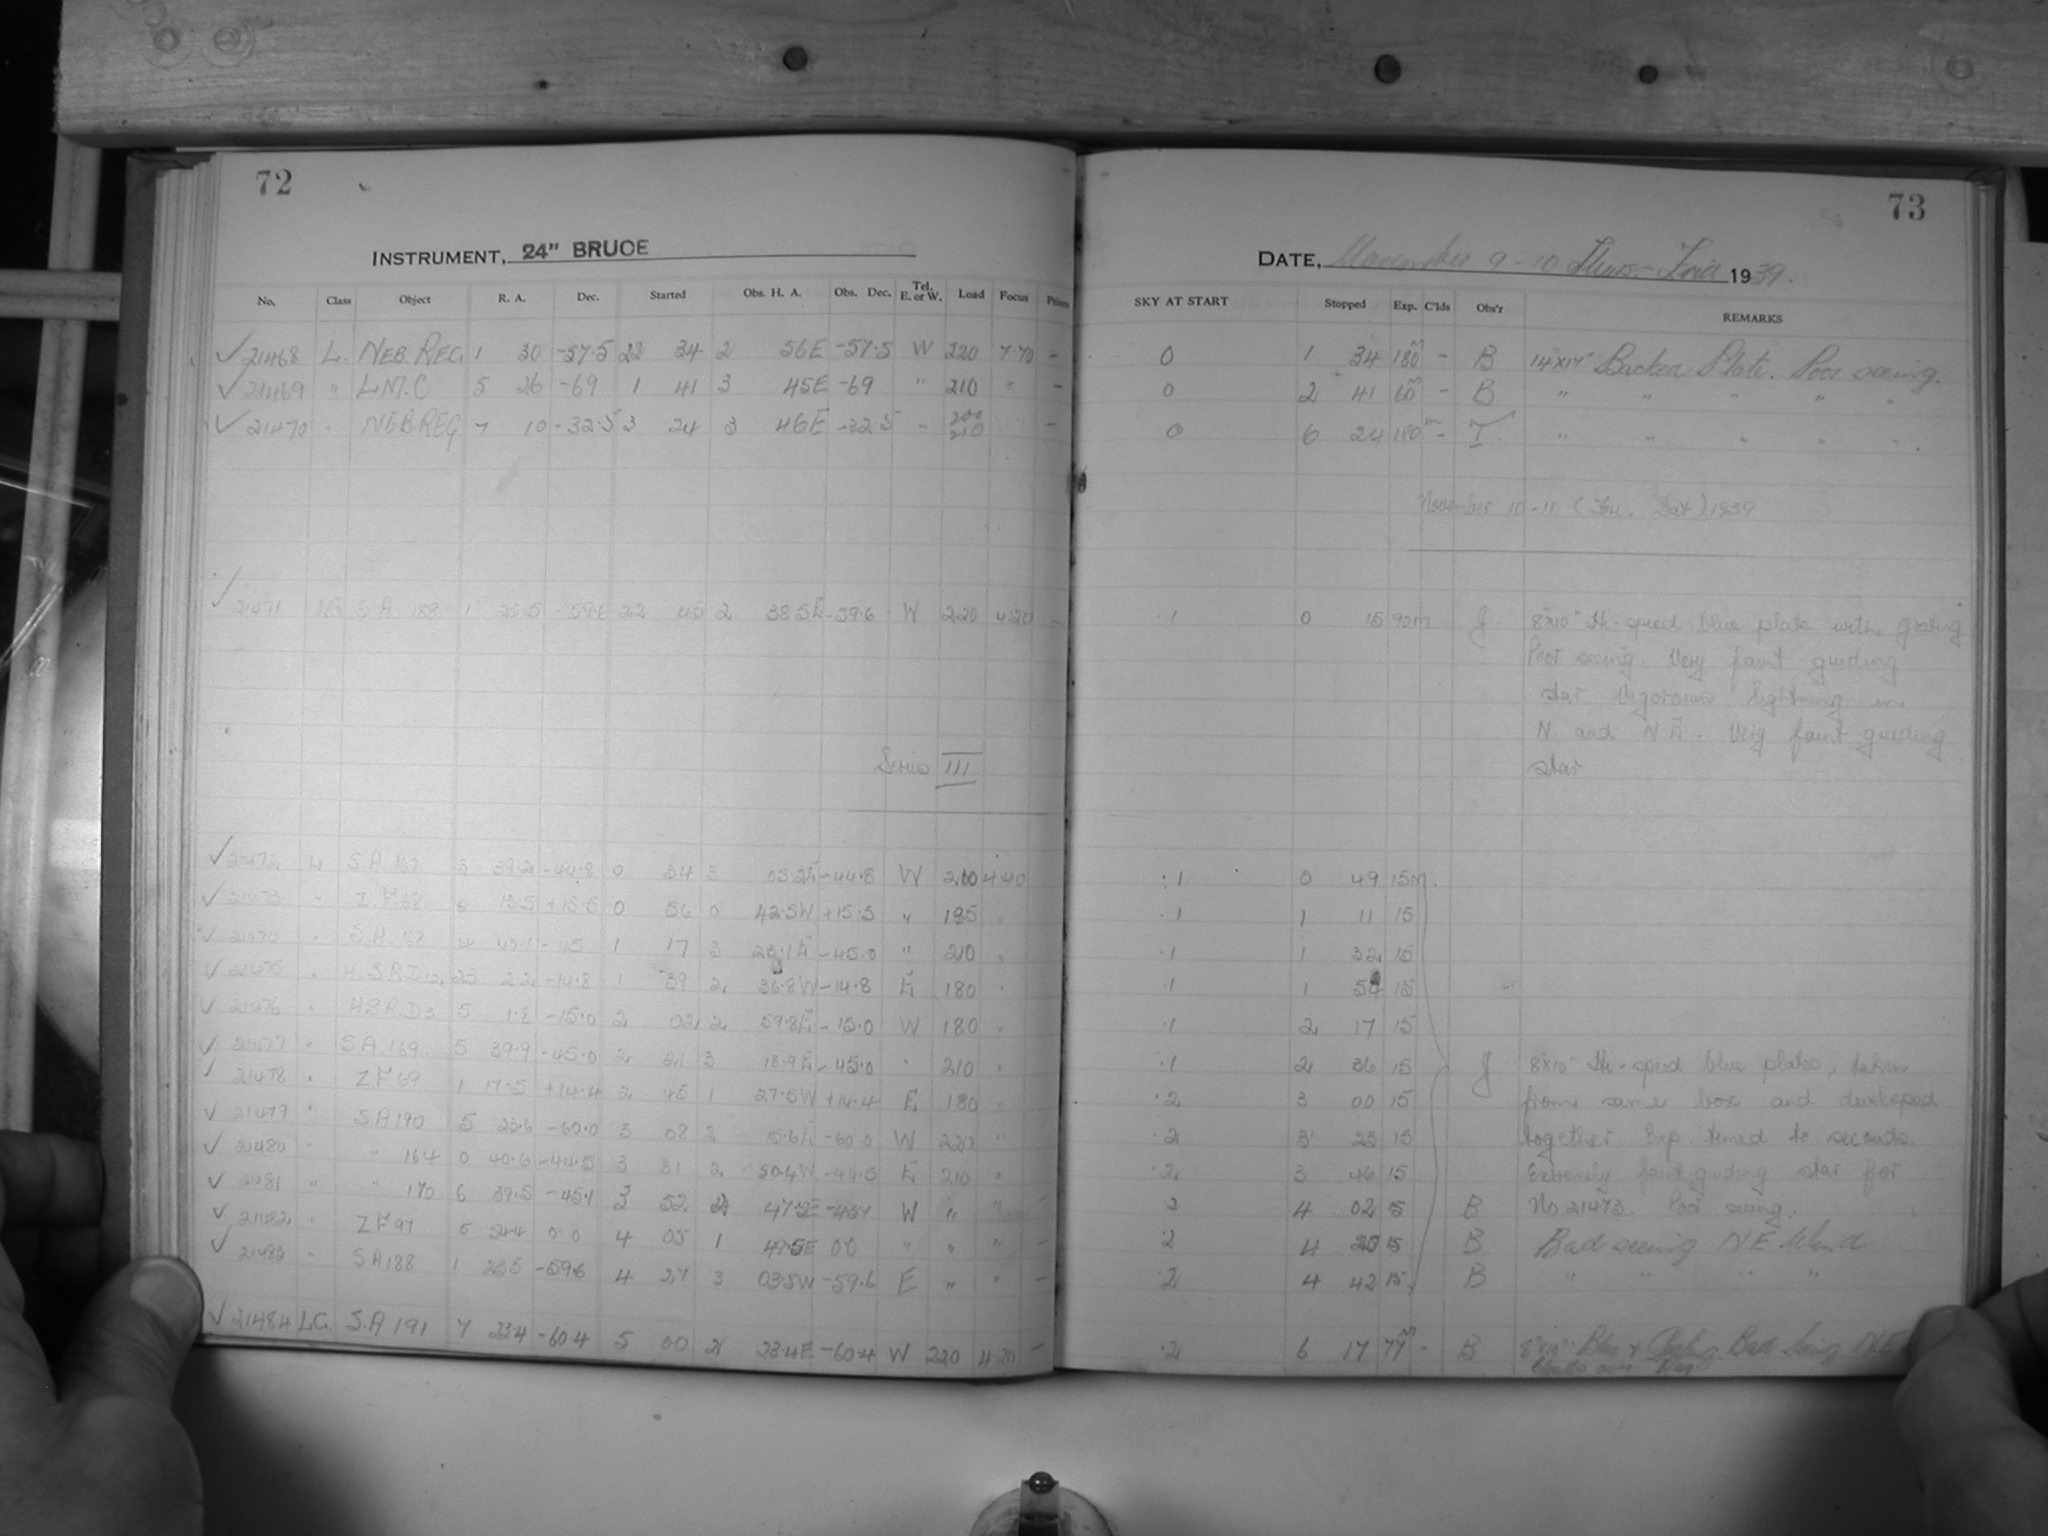 72
INSTRUMENT, 24" BRUCE
No. Class Object R. A. Dec. Started Obs. H. A. Obs. Dec. Tel. E. or W. Load Focus
✓ 21468 L. NEB. REG. 1 30 -57.5 22 34 2 56E -57.5 W 220 7.70 -
✓ 21469 " L.M.C 5 26 -69 1 41 3 45E -69 " 210 " -
✓ 21470 " NEB.REG. 7 10 -32.5 3 24 3 46E -32.5 " 200 210 -
✓ 21471 S.A 188 1 23.5 -59.6 22 45 2 38.5E -59.6 W 220 4.20 -
Series III
✓ 21472 L S.A.167 3 39.2 -44.8 0 34 3 05.2E -44.8 W 210 4.40
✓ 21473 " Z.F.68 0 13.5 +15.5 0 56 0 42.5W +15.5 " 185 "
✓ 21474 " S.A.168 4 40.1 -45 1 17 3 23.1E -45.0 " 210 "
✓ 21475 " H.S.R.D12 23 2.2 -14.8 1 39 2 36.8W -14.8 E 180 "
✓ 21476 " H.S.R.D3 5 1.8 -15.0 2 02 2 59.8E -15.0 W 180 "
✓ 21477 " S.A.169 5 39.9 -45.0 2 21 3 18.9E -45.0 " 210 "
✓ 21478 " Z F 69 1 17.5 +14.4 2 45 1 27.5W +14.4 E 180 "
✓ 21479 " S.A 190 5 23.6 -60.0 3 08 2 15.6E -60.0 W 220 "
✓ 21480 " " 164 0 40.6 -44.5 3 31 2 50.4W -44.5 E 210 "
✓ 21481 " " 170 6 39.5 -45.1 3 52 2 47.5E -45.1 W " "
✓ 21482 " Z F 97 5 54.4 0.0 4 05 1 49.5E 00 " " " -
✓ 21483 " SA188 1 23.5 -59.6 4 27 3 03.5W -59.6 E " " -
✓ 21484 LG. S.A 191 7 23.4 -60.4 5 00 2 23.4E -60.4 W 220 4.20 -
73
DATE, November 9-10 Thurs-Frid 1939.
SKY AT START Stopped Exp. C'lds Obs'r REMARKS
0 1 34 180m - B 14"x17" Backed Plate. Poor seeing.
0 2 41 60m - B " " " " "
0 6 24 180m - T " " " " "
November 10-11 (Fri. Sat) 1939
.1 0 15 90m J 8"x10" Hi-speed blue plate with grating
Poor seeing. Very faint guiding
star Vigorous lightning in
N. and N E. Very faint guiding
star
.1 0 49 15m.
.1 1 11 15
.1 1 32 15
.1 1 54 15
.1 2 17 15
.1 2 36 15 J 8"x10" Hi-speed blue plates, taken
.2 3 00 15 from same box and developed
.2 3 23 15 together Exp timed to seconds.
.2 3 46 15 Extremely faint guiding star for
.2 4 02 15 B No. 21473. Poor seeing.
.2 4 20 15 B Bad seeing N.E. Wind
.2 4 42 15 B " " " "
.2 6 17 77m - B 8"x10" Blue & Grating Bad Seeing N.E
Clouds over